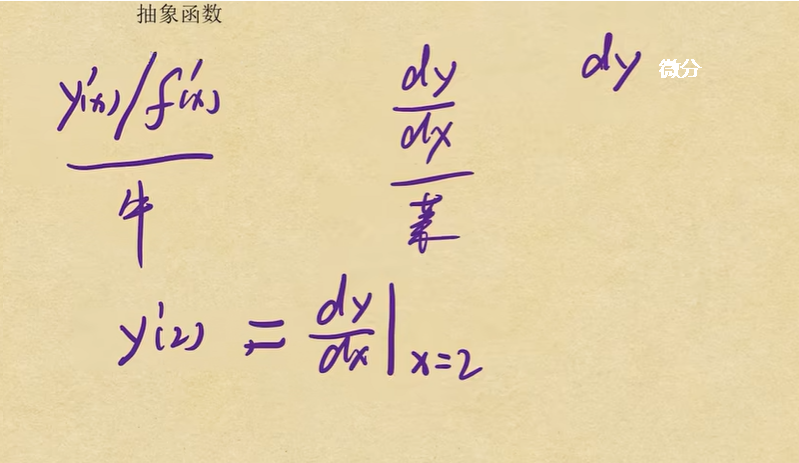 抽象函数
y'(x)/f'(x)
牛
dy/dx
莱
dy 微分
y'(2) = dy/dx|x=2